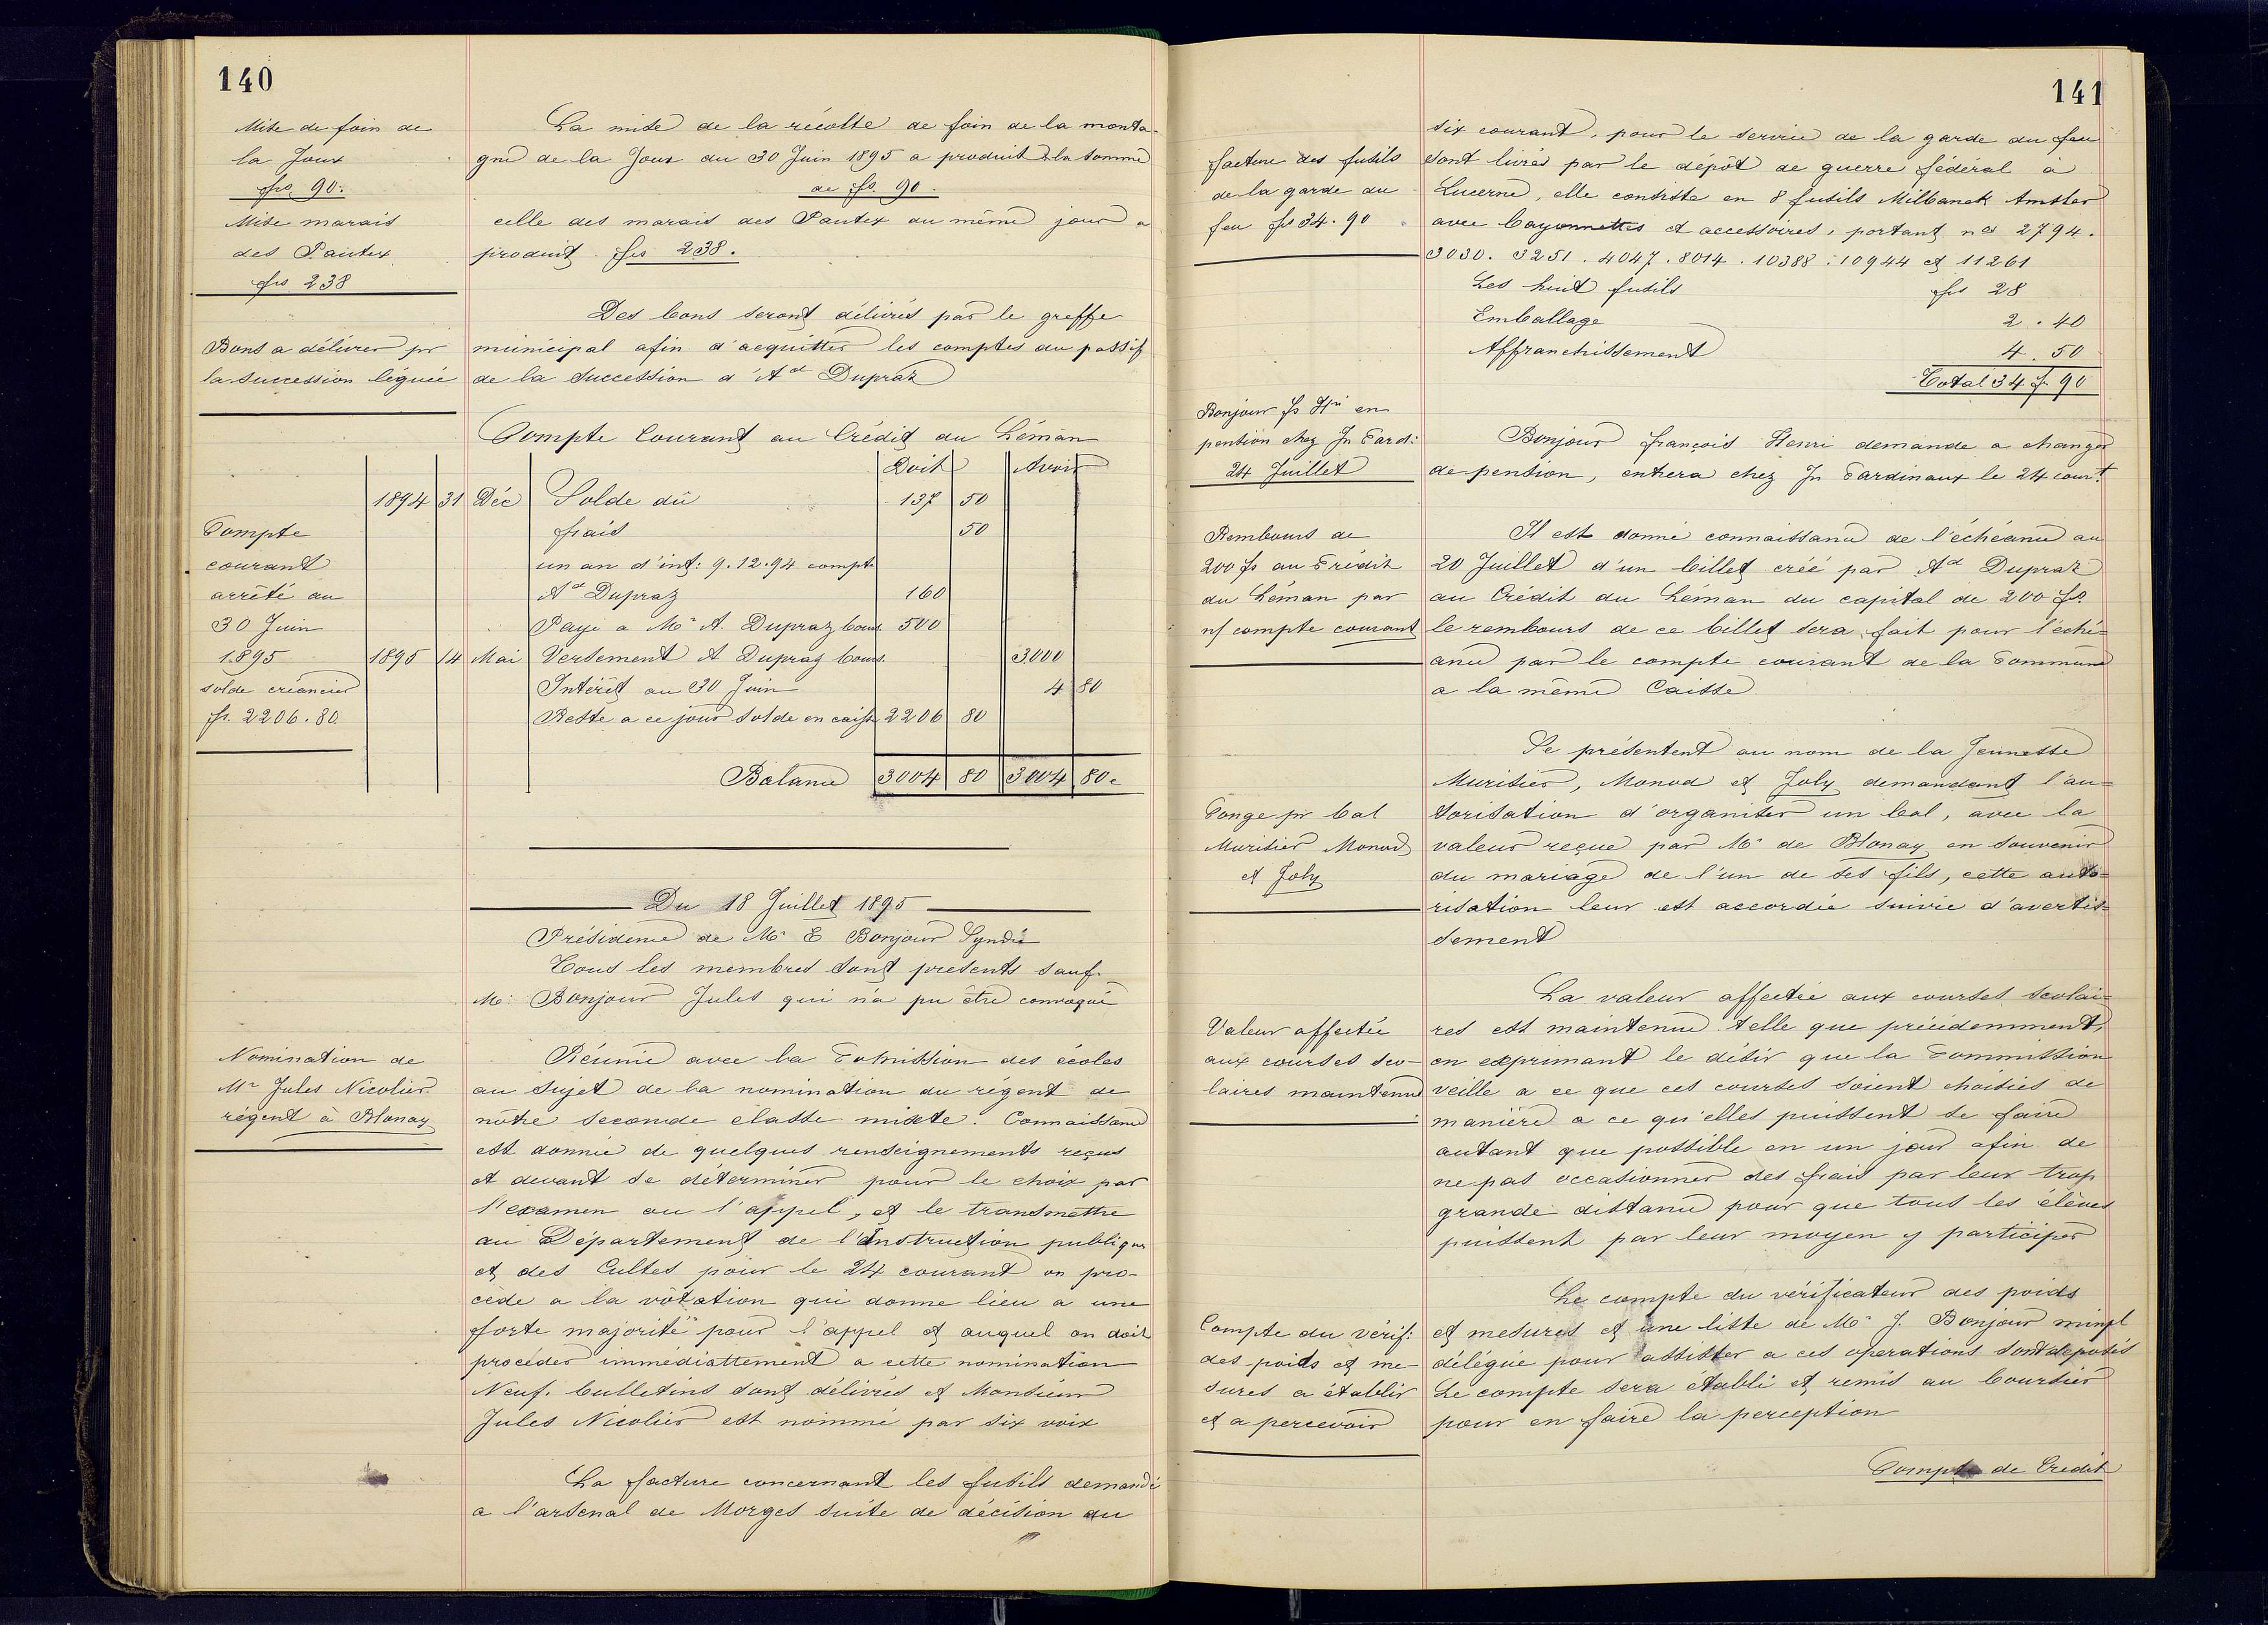 140
Mise de foin de
la Joux
frs 90.
Mise marais
des Pautex
frs 238
Bons a délivrer pr
la succession léguée
Compte
courant
arrêté au
30 Juin
1895
solde créancier
fr. 2206.80
Nomination de
Mr Jules Nicolier
régent à Blonay
La mise de la récolte de foin de la monta-
gne de la Joux du 30 Juin 1895 a produit la somme
de frs. 90.
celle des marais des Pautex du même jour a
produit frs 238.
Des bons seront délivrés par le greffe
municipal afin d'acquitter les comptes du passif
de la succession d'Ad Dupraz
Compte Courant au Crédit du Léman
Doit Avoir
1894 31 Déc Solde dû 137 50
frais 50
un an d'int: 9.12.94 compte
Ad Dupraz 160
Payé a Mr A. Dupraz bours 500
1895 14 Mai Versement A Dupraz bours. 3000
Intérêt au 30 Juin 4 80
Reste a ce jour solde en caisse 2206 80
Balance 3004 80 3004 80
Du 18 Juillet 1895
Présidence de Mr E Bonjour Syndic
Tous les membres sont presents sauf
Mr Bonjour Jules qui n'a pu être convoqué
Réunie avec la Commission des écoles
au sujet de la nomination du régent de
nôtre seconde classe mixte. Connaissance
est donnée de quelques renseignements reçus
et devant se déterminer pour le choix par
l'examen ou l'appel, et le transmettre
au Département de l'Instruction publique
et des Cultes pour le 24 courant on pro-
cède a la vôtation qui donne lieu a une
forte majorité pour l'appel et auquel on doit
procéder immédiattement a cette nomination
Neuf bulletins sont délivrés et Monsieur
Jules Nicolier est nommé par six voix
La facture concernant les fusils demandé
a l'arsenal de Morges suite de décision du
141
facture des fusils
de la garde du
feu frs 34.90
Bonjour fs Hri en
pension chez Jn Tard:
24 Juillet
Rembours de
200 fs au Crédit
du Léman par
n/ compte courant
Conge pr bal
Murisier Monod
et Joly
Valeur affectée
aux courses sco-
laires maintenue
Compte du vérif:
des poids et me-
sures a établir
et a percevoir
six courant, pour le service de la garde du feu
sont livrés par le dépôt de guerre fédéral à
Lucerne, elle consiste en 8 fusils Milbanck Amsler
avec bayonnettes et accessoires, portant nos 2794.
3030. 3251. 4047. 8014. 10388. 10944 et 11261
Les huit fusils frs 28
Emballage 2.40
Affranchissement 4.50
Total 34 f 90
Bonjour françois Henri demande a changer
de pension, entrera chez Jn Tardinaux le 24 court
Il est donné connaissance de l'échéance au
20 Juillet d'un billet créé par Ad Dupraz
au Crédit du Leman du capital de 200 fs.
le rembours de ce billet sera fait pour l'éché-
ance par le compte courant de la Commune
a la même Caisse
Se présentent au nom de la Jeunesse
Murisier, Monod et Joly demandant l'au-
torisation d'organiser un bal, avec la
valeur reçue par Mr de Blonay en souvenir
du mariage de l'un de ses fils, cette auto-
risation leur est accordée suivie d'avertis-
sement
La valeur affectée aux courses scolai-
res est maintenue telle que précédemment,
en exprimant le désir que la Commission
veille a ce que ces courses soient choisies de
manière a ce qu'elles puissent se faire
autant que possible en un jour afin de
ne pas occasionner des frais par leur trop
grande distance pour que tous les élèves
puissent par leur moyen y participer
Le compte du vérificateur des poids
et mesures et une liste de Mr J. Bonjour minpl
délégué pour assister a ces operations sont deposés
Le compte sera établi et remis au boursier
pour en faire la perception
Compte de Credit